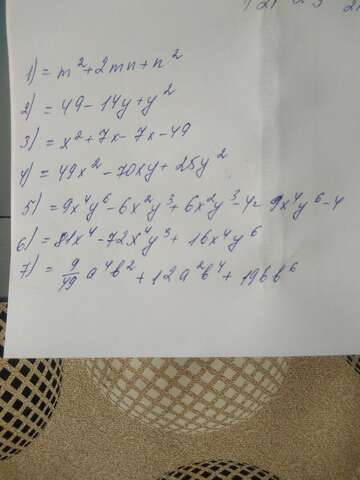 1) = m² + 2mn + n²
2) = 49 - 14y + y²
3) = x² + 7x - 7x - 49
4) = 49x² - 70xy + 25y²
5) = 9x⁴y⁶ - 6x²y³ + 6x²y³ - 4 = 9x⁴y⁶ - 4
6) = 81x⁴ - 72x⁴y³ + 16x⁴y⁶
7) = 9/49 a⁴b² + 12a²b⁴ + 196b⁶